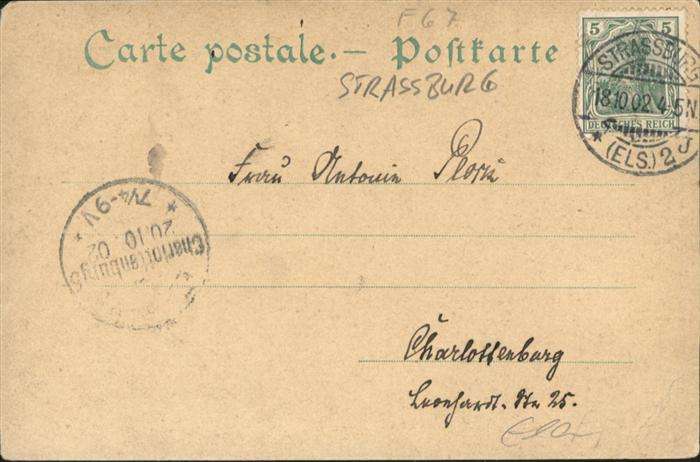 F 67
Carte postale. — Postkarte
STRASSBURG
5 5
DEUTSCHES REICH
STRASSBURG
18.10.02.4-5N
* (ELS.) 2 J
Frau Antonie
7¼-9V
20.10.02
Charlottenburg 5
Charlottenburg
Leonhardt-Str 25.